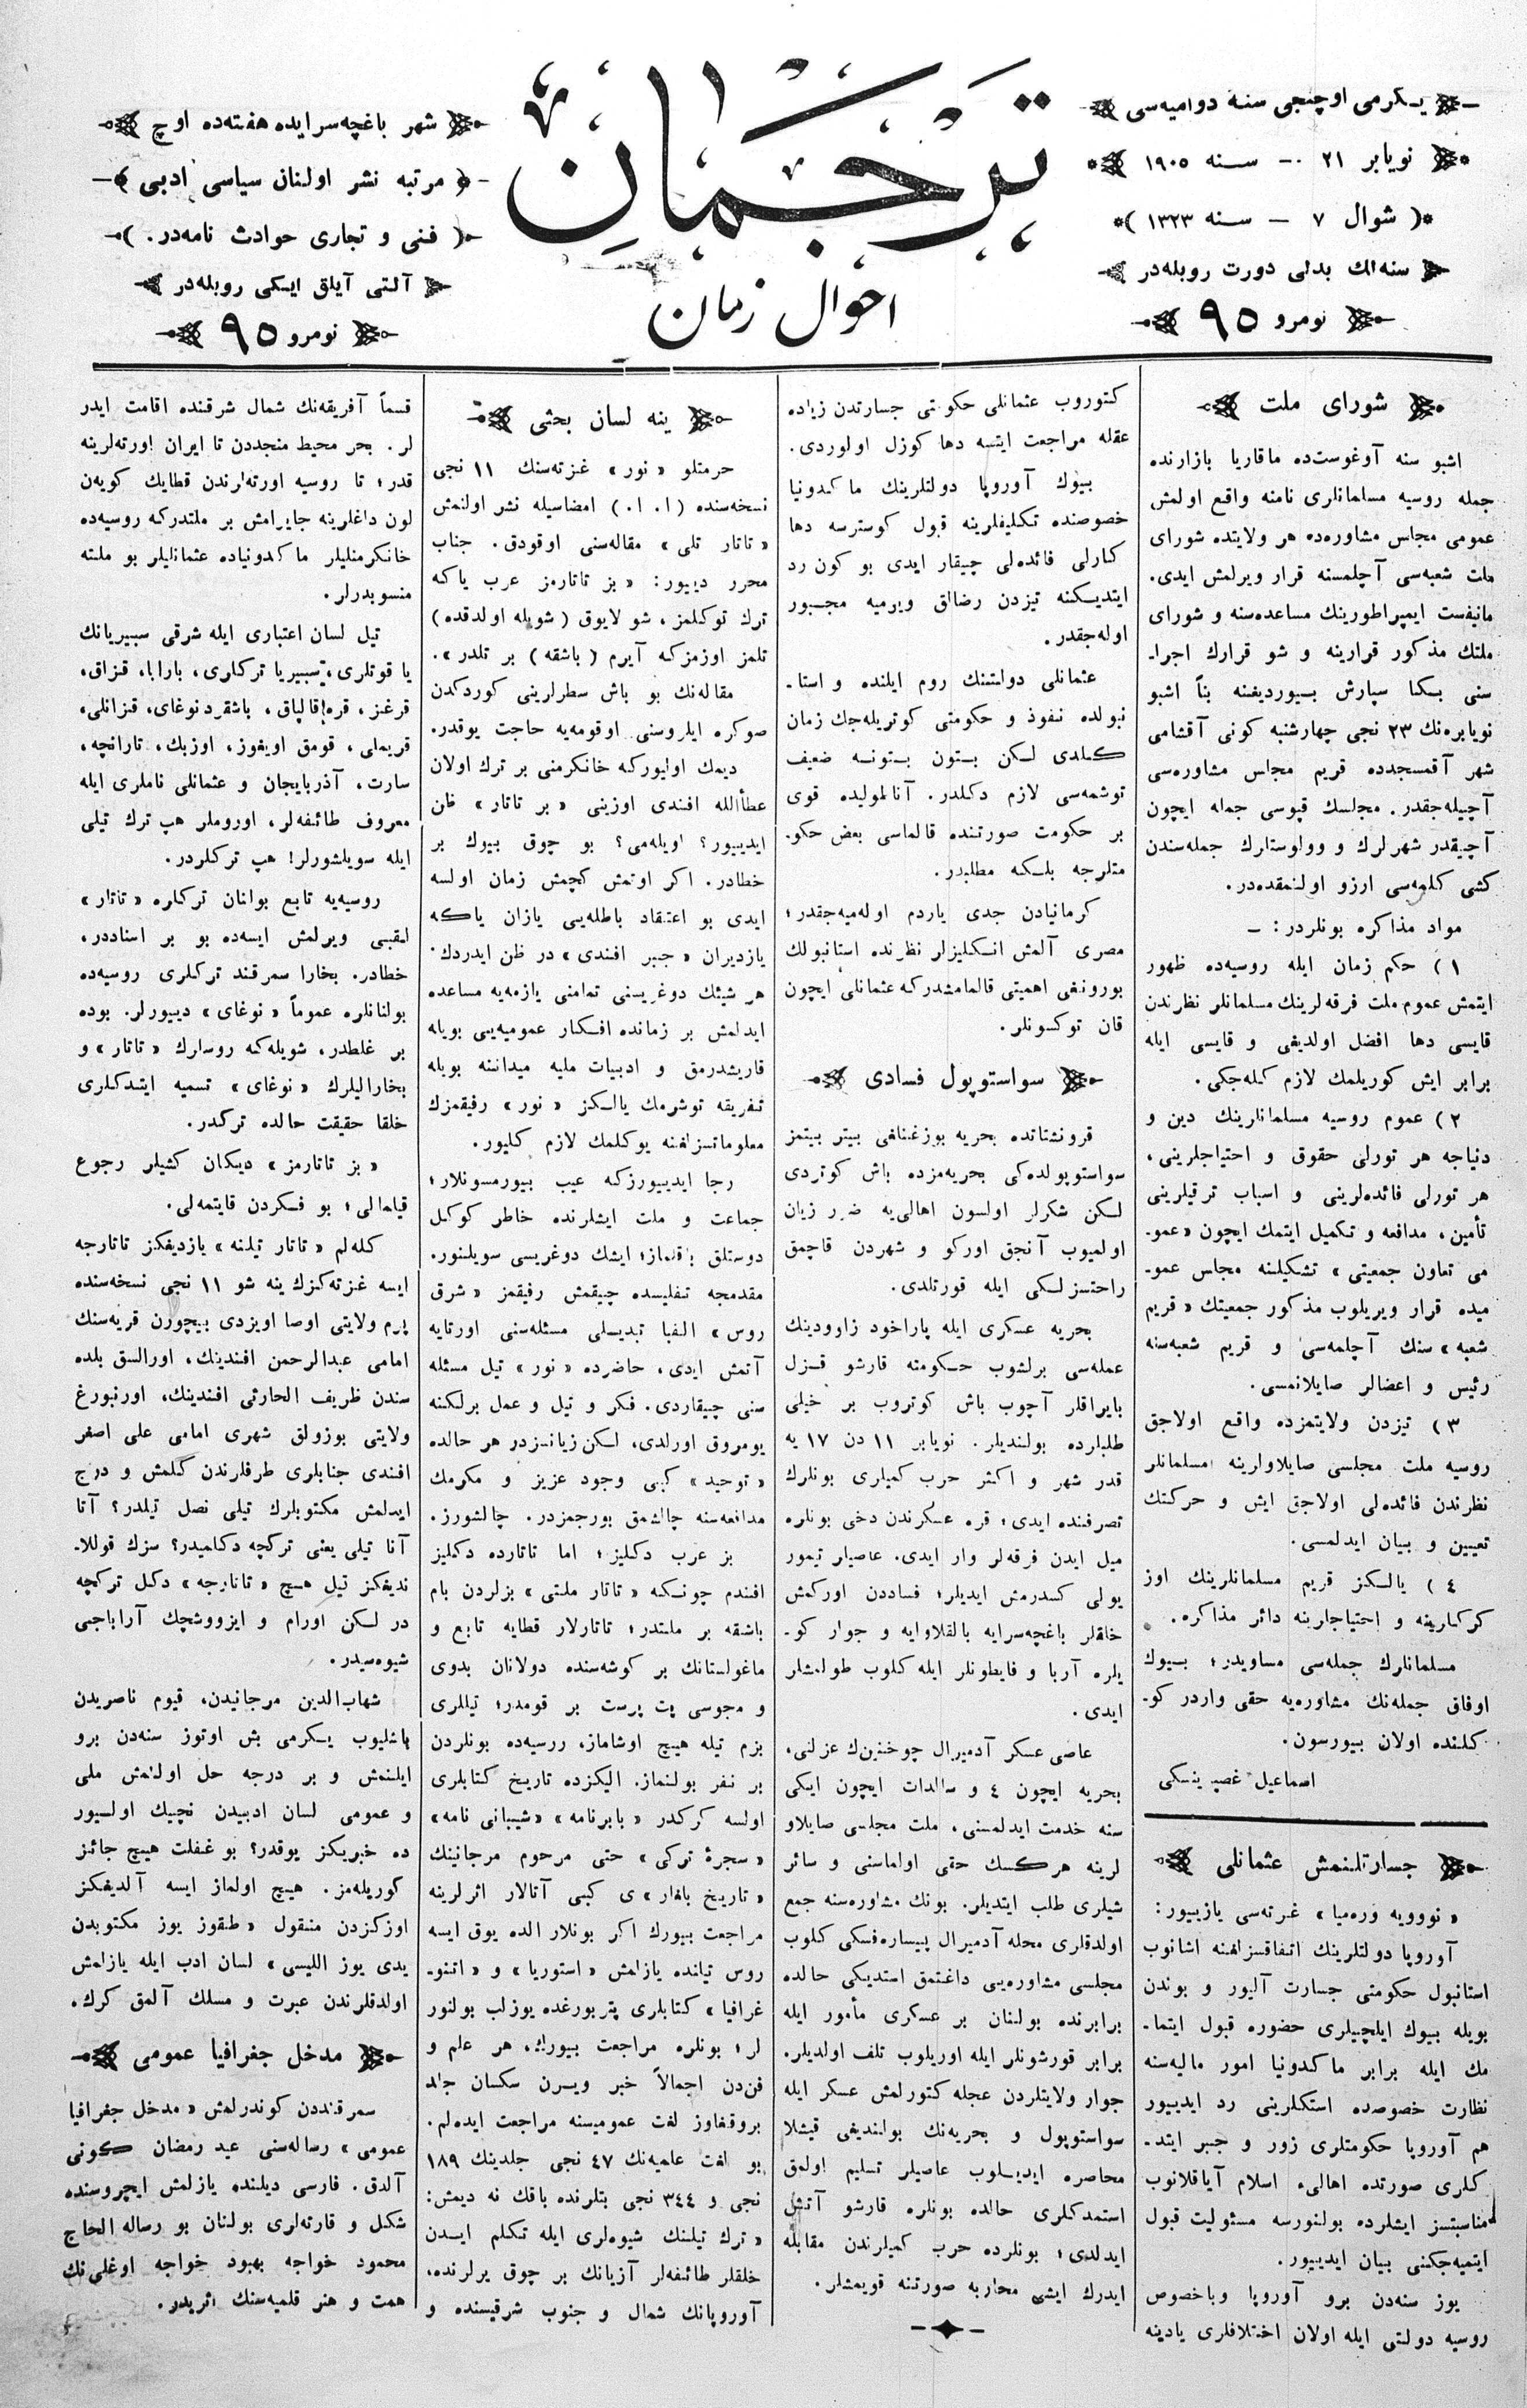 يكرمی اوچنجی سنه دوامیه‌سی
نویابر ۲۱ — سنه ۱۹۰۵
(شوال ۷ — سنه ۱۳۲۳)
سنه‌لك بدلی دورت روبله‌در
نومرو ۹۵
ترجمان
احوال زمان
شهر باغچه‌سرایده هفته‌ده اوچ
مرتبه نشر اولنان سیاسی ادبی
(فنی و تجاری حوادث نامه‌در.)
آلتی آیلق ایكی روبله‌در
نومرو ۹۵
شورای ملت
اشبو سنه آوغوست‌ده ماقاریا بازارنده
جمله روسیه مسلمانلری نامنه واقع اولمش
عمومی مجلس مشاوره‌ده هر ولایتده شورای
ملت شعبه‌سی آچلمسنه قرار ویرلمش ایدی.
مانیفست ایمپراطورینك مساعده‌سنه و شورای
ملتك مذكور قرارینه و شو قرارك اجرا-
سنی بكا سپارش بیوردیغنه بناً اشبو
نویابره‌نك ۲۳ نجی چهارشنبه كونی آقشامی
شهر آقمسجدده قریم مجلس مشاوره‌سی
آچیله‌جقدر. مجلسك قپوسی جمله ایچون
آچیقدر شهرلرك و وولوستلرك جمله‌سندن
كشی كلمه‌سی ارزو اولنمقده‌در.
مواد مذاكره بونلردر: —
۱) حكم زمان ایله روسیه‌ده ظهور
ایتمش عموم ملت فرقه‌لرینك مسلمانلر نظرندن
قایسی دها افضل اولدیغی و قایسی ایله
برابر ایش كوریلمك لازم كله‌جكی.
۲) عموم روسیه مسلمانلرینك دین و
دنیاجه هر تورلی حقوق و احتیاجلرینی،
هر تورلی فائده‌لرینی و اسباب ترقیلرینی
تأمین، مدافعه و تكمیل ایتمك ایچون «عمو-
می تعاون جمعیتی» تشكیلنه مجلس عمو-
میده قرار ویریلوب مذكور جمعیتك «قریم
شعبه» سنك آچلمه‌سی و قریم شعبه‌سنه
رئیس و اعضالر صایلانمسی.
۳) تیزدن ولایتمزده واقع اولاجق
روسیه ملت مجلسی صایلاولرینه مسلمانلر
نظرندن فائده‌لی اولاجق ایش و حركتك
تعیین و بیان ایدلمسی.
٤) یالكز قریم مسلمانلرینك اوز
كركلرینه و احتیاجلرینه دائر مذاكره.
مسلمانلرك جمله‌سی مساویدر؛ بیوك
اوفاق جمله‌نك مشاوره‌یه حقی واردر كو-
كلنده اولان بیورسون.
اسماعیل غصپرینسكی
جسارتلنمش عثمانلی
«نوویه وره‌میا» غزته‌سی یازییور:
آوروپا دولتلرینك اتفاقسزلغنه اشانوب
استانبول حكومتی جسارت آلیور و بوندن
بویله بیوك ایلچیلری حضوره قبول ایتما-
مك ایله برابر ماكدونیا امور مالیه‌سنه
نظارت خصوصده استكلرینی رد ایدییور
هم آوروپا حكومتلری زور و جبر ایتد-
كلری صورتده اهالیء اسلام آیاقلانوب
مناسبتسز ایشلرده بولنورسه مسئولیت قبول
ایتمیه‌جكنی بیان ایدییور.
یوز سنه‌دن برو آوروپا وباخصوص
روسیه دولتی ایله اولان اختلافلری یادینه
كتوروب عثمانلی حكومتی جسارتدن زیاده
عقله مراجعت ایتسه دها كوزل اولوردی.
بیوك آوروپا دولتلرینك ماكدونیا
خصوصنده تكلیفلرینه قبول كوسترسه دها
كارلی فائده‌لی چیقار ایدی بو كون رد
ایتدیكنه تیزدن رضالق ویرمیه مجبور
اوله‌جقدر.
عثمانلی دولتنك روم ایلنده و استا-
نبولده نفوذ و حكومتی كوتریله‌جك زمان
كلدی لكن بتون بتونه ضعیف
توشمه‌سی لازم دكلدر. آناطولیده قوی
بر حكومت صورتنده قالماسی بعض حكو-
متلرجه بلكه مطلبدر.
كرمانیادن جدی یاردم اوله‌میه‌جقدر؛
مصری آلمش انكلیزلر نظرنده استانبولك
بورونغی اهمیتی قالمامشدركه عثمانلی ایچون
قان توكسونلر.
سواستوپول فسادی
قرونشتاتده بحریه بوزغنلغی بیتر بیتمز
سواستوپولده‌كی بحریه‌مزده باش كوتردی
لكن شكرلر اولسون اهالی‌یه ضرر زیان
اولمیوب آنجق اوركو و شهردن قاچمق
راحتسزلكی ایله قورتلدی.
بحریه عسكری ایله پاراخود زاوودینك
عمله‌سی برلشوب حكومته قارشو قزل
بایراقلر آچوب باش كوتروب بر خیلی
طلبلرده بولندیلر. نویابر ۱۱ دن ۱۷ یه
قدر شهر و اكثر حرب كمیلری بونلرك
تصرفنده ایدی؛ قره عسكرندن دخی بونلره
میل ایدن فرقه‌لر وار ایدی. عاصیلر تیمور
یولی كسدرمش ایدیلر؛ فساددن اوركمش
خلقلر باغچه‌سرایه بالقلاوایه و جوار كو-
یلره آربا و فایطونلر ایله كلوب طولمشلر
ایدی.
عاصی عسكر آدمیرال چوخنین‌ك عزلنی،
بحریه ایچون ٤ و سالدات ایچون ایكی
سنه خدمت ایدلمسنی، ملت مجلسی صایلاو
لرینه هركسك حقی اولماسنی و سائر
شیلری طلب ایتدیلر. بونك مشاوره‌سنه جمع
اولدقلری محله آدمیرال پیساره‌فسكی كلوب
مجلسی مشاوره‌یی داغتمق استدیكی حالده
برابرنده بولنان بر عسكری مأمور ایله
برابر قورشونلر ایله اوریلوب تلف اولدیلر.
جوار ولایتلردن عجله كتورلمش عسكر ایله
سواستوپول و بحریه‌نك بولندیغی قیشلا
محاصره ایدیلوب عاصیلر تسلیم اولمق
استمدكلری حالده بونلره قارشو آتش
ایدلدی؛ بونلرده حرب كمیلرندن مقابله
ایدرك ایشی محاربه صورتنه قویمشلر.
ینه لسان بحثی
حرمتلو «نور» غزته‌سنك ۱۱ نجی
نسخه‌سنده (ا. ا.) امضاسیله نشر اولنمش
«تاتار تلی» مقاله‌سنی اوقودق. جناب
محرر دییور: «بز تاتارمز عرب یاكه
ترك توكلمز، شو لایوق (شویله اولدقده)
تلمز اوزمزكه آیرم (باشقه) بر تلدر».
مقاله‌نك بو باش سطرلرینی كوردكدن
صوكره ایلروسنی اوقومه‌یه حاجت یوقدر.
دیمك اولیوركه خانكرمنی بر ترك اولان
عطأالله افندی اوزینی «بر تاتار» ظن
ایدییور؟ اویله‌می؟ بو چوق بیوك بر
خطادر. اكر اوتمش كچمش زمان اولسه
ایدی بو اعتقاد باطله‌یی یازان یاكه
یازدیران «جبر افندی» در ظن ایدردك.
هر شیئك دوغریسنی تمامنی یازمه‌یه مساعده
ایدلمش بر زمانده افكار عمومیه‌یی بویله
قاریشدرمق و ادبیات ملیه میداننه بویله
تفریقه توشرمك یالكز «نور» رفیقمزك
معلوماتسزلغنه یوكلمك لازم كلیور.
رجا ایدییورزكه عیب بیورمسونلار؛
جماعت و ملت ایشلرنده خاطر كوكل
دوستلق باقلماز؛ ایشك دوغریسی سویلنور.
مقدمجه تفلیسده چیقمش رفیقمز «شرق
روس» الفبا تبدیلی مسئله‌سنی اورتایه
آتمش ایدی، حاضرده «نور» تیل مسئله
سنی چیقاردی. فكر و تیل و عمل برلكنه
یومروق اورلدی، لكن زیانسزدر هر حالده
«توحید» كبی وجود عزیز و مكرمك
مدافعه‌سنه چالشمق بورجمزدر. چالشورز.
بز عرب دكلیز؛ اما تاتارده دكلیز
افندم چونكه «تاتار ملتی» بزلردن بام
باشقه بر ملتدر؛ تاتارلار قطایه تابع و
ماغولستانك بر كوشه‌سنده دولانان بدوی
و مجوسی پت پرست بر قومدر؛ تیللری
بزم تیله هیچ اوشاماز، روسیه‌ده بونلردن
بر نفر بولنماز. الیكزده تاریخ كتابلری
اولسه كركدر «بابرنامه» «شیبانی نامه»
«سجرهٔ تركی» حتی مرحوم مرجانینك
«تاریخ بلغار»ی كبی آتالار اثرلرینه
مراجعت بیورك اكر بونلار الده یوق ایسه
روس تیلنده یازلمش «استوریا» و «اتنو-
غرافیا» كتابلری پتربورغده یوزلب بولنور
لر؛ بونلره مراجعت بیورك، هر علم و
فن‌دن اجمالاً خبر ویرن سكسان جلد
بروقغاوز لغت عمومیسنه مراجعت ایده‌لم.
بو لغت علمیه‌نك ٤٧ نجی جلدینك ۱۸۹
نجی و ۳٤٤ نجی بتلرنده باقك نه دیمش:
«ترك تیلنك شیوه‌لری ایله تكلم ایدن
خلقلر طائفه‌لر آزیانك بر چوق یرلرنده،
آوروپانك شمال و جنوب شرقیسنده و
قسماً آفریقه‌نك شمال شرقنده اقامت ایدر
لر. بحر محیط منجددن تا ایران اورته‌لرینه
قدر؛ تا روسیه اورته‌لرندن قطایك كویه‌ن
لون داغلرینه جایرامش بر ملتدركه روسیه‌ده
خانكرمنلیلر ماكدونیاده عثمانلیلر بو ملته
منسوبدرلر.
تیل لسان اعتباری ایله شرقی سیبیریانك
یاقوتلری، سیبیریا تركلری، بارابا، قزاق،
قرغز، قره‌قالپاق، باشقرد نوغای، قزانلی،
قریملی، قومق اویغوز، اوزبك، تارانچه،
سارت، آذربایجان و عثمانلی ناملری ایله
معروف طائفه‌لر، اوروملر هپ ترك تیلی
ایله سویلشورلر! هپ تركلردر.
روسیه‌یه تابع بولنان تركلره «تاتار»
لقبی ویرلمش ایسه‌ده بو بر اسناددر،
خطادر. بخارا سمرقند تركلری روسیه‌ده
بولنانلره عموماً «نوغای» دییورلر. بوده
بر غلطدر، شویله‌كه روسلرك «تاتار» و
بخارالیلرك «نوغای» تسمیه ایتدكلری
خلقا حقیقت حالده تركدر.
«بز تاتارمز» دیكان كشیلر رجوع
قیلمالی؛ بو فكردن قایتمه‌لی.
كله‌لم «تاتار تیلنه» یازدیغكز تاتارجه
ایسه غزته‌كزك ینه شو ۱۱ نجی نسخه‌سنده
پرم ولایتی اوصا اویزدی بیچورن قریه‌سنك
امامی عبدالرحمن افندینك، اورالسق بلده
سندن ظریف الحارثی افندینك، اورنبورغ
ولایتی بوزولق شهری امامی علی اصغر
افندی جنابلری طرفلرندن كلمش و درج
ایدلمش مكتوبلرك تیلی نصل تیلدر؟ آتا
آنا تیلی یعنی تركچه دكلمیدر؟ سزك قوللا-
ندیغكز تیل هیچ «تاتارجه» دكل تركچه
در لكن اورام و ایزووشچك آراباجی
شیوه‌سیدر.
شهاب‌الدین مرجانیدن، قیوم ناصریدن
باشلیوب یكرمی بش اوتوز سنه‌دن برو
ایلنمش و بر درجه حل اولنمش ملی
و عمومی لسان ادبیدن نچیك اولیور
ده خبریكز یوقدر؟ بو غفلت هیچ جائز
كوریله‌مز. هیچ اولماز ایسه آلدیغكز
اوزكزدن منقول «طقوز یوز مكتوبدن
یدی یوز اللیسی» لسان ادب ایله یازلمش
اولدقلرندن عبرت و مسلك آلمق كرك.
مدخل جغرافیا عمومی
سمرقنددن كوندرلمش «مدخل جغرافیا
عمومی» رساله‌سنی عید رمضان كونی
آلدق. فارسی دیلنده یازلمش ایچروسنده
شكل و قارته‌لری بولنان بو رساله الحاج
محمود خواجه بهبود خواجه اوغلی‌نك
همت و هنر قلمیه‌سنك اثریدر.